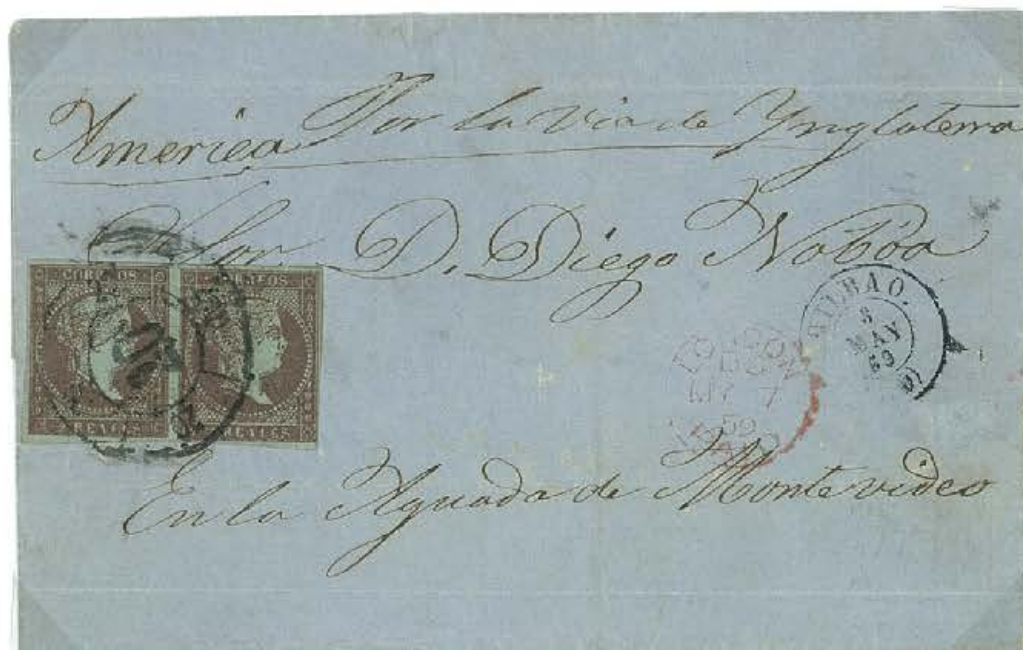 America Por la via de Ynglaterra
Sor. D. Diego Nobôa
CORREOS CORREOS
REALES REALES
BILBAO.
3
MAY
59
LONDON
MY 7
59
PAID
En la Aguada de Montevideo